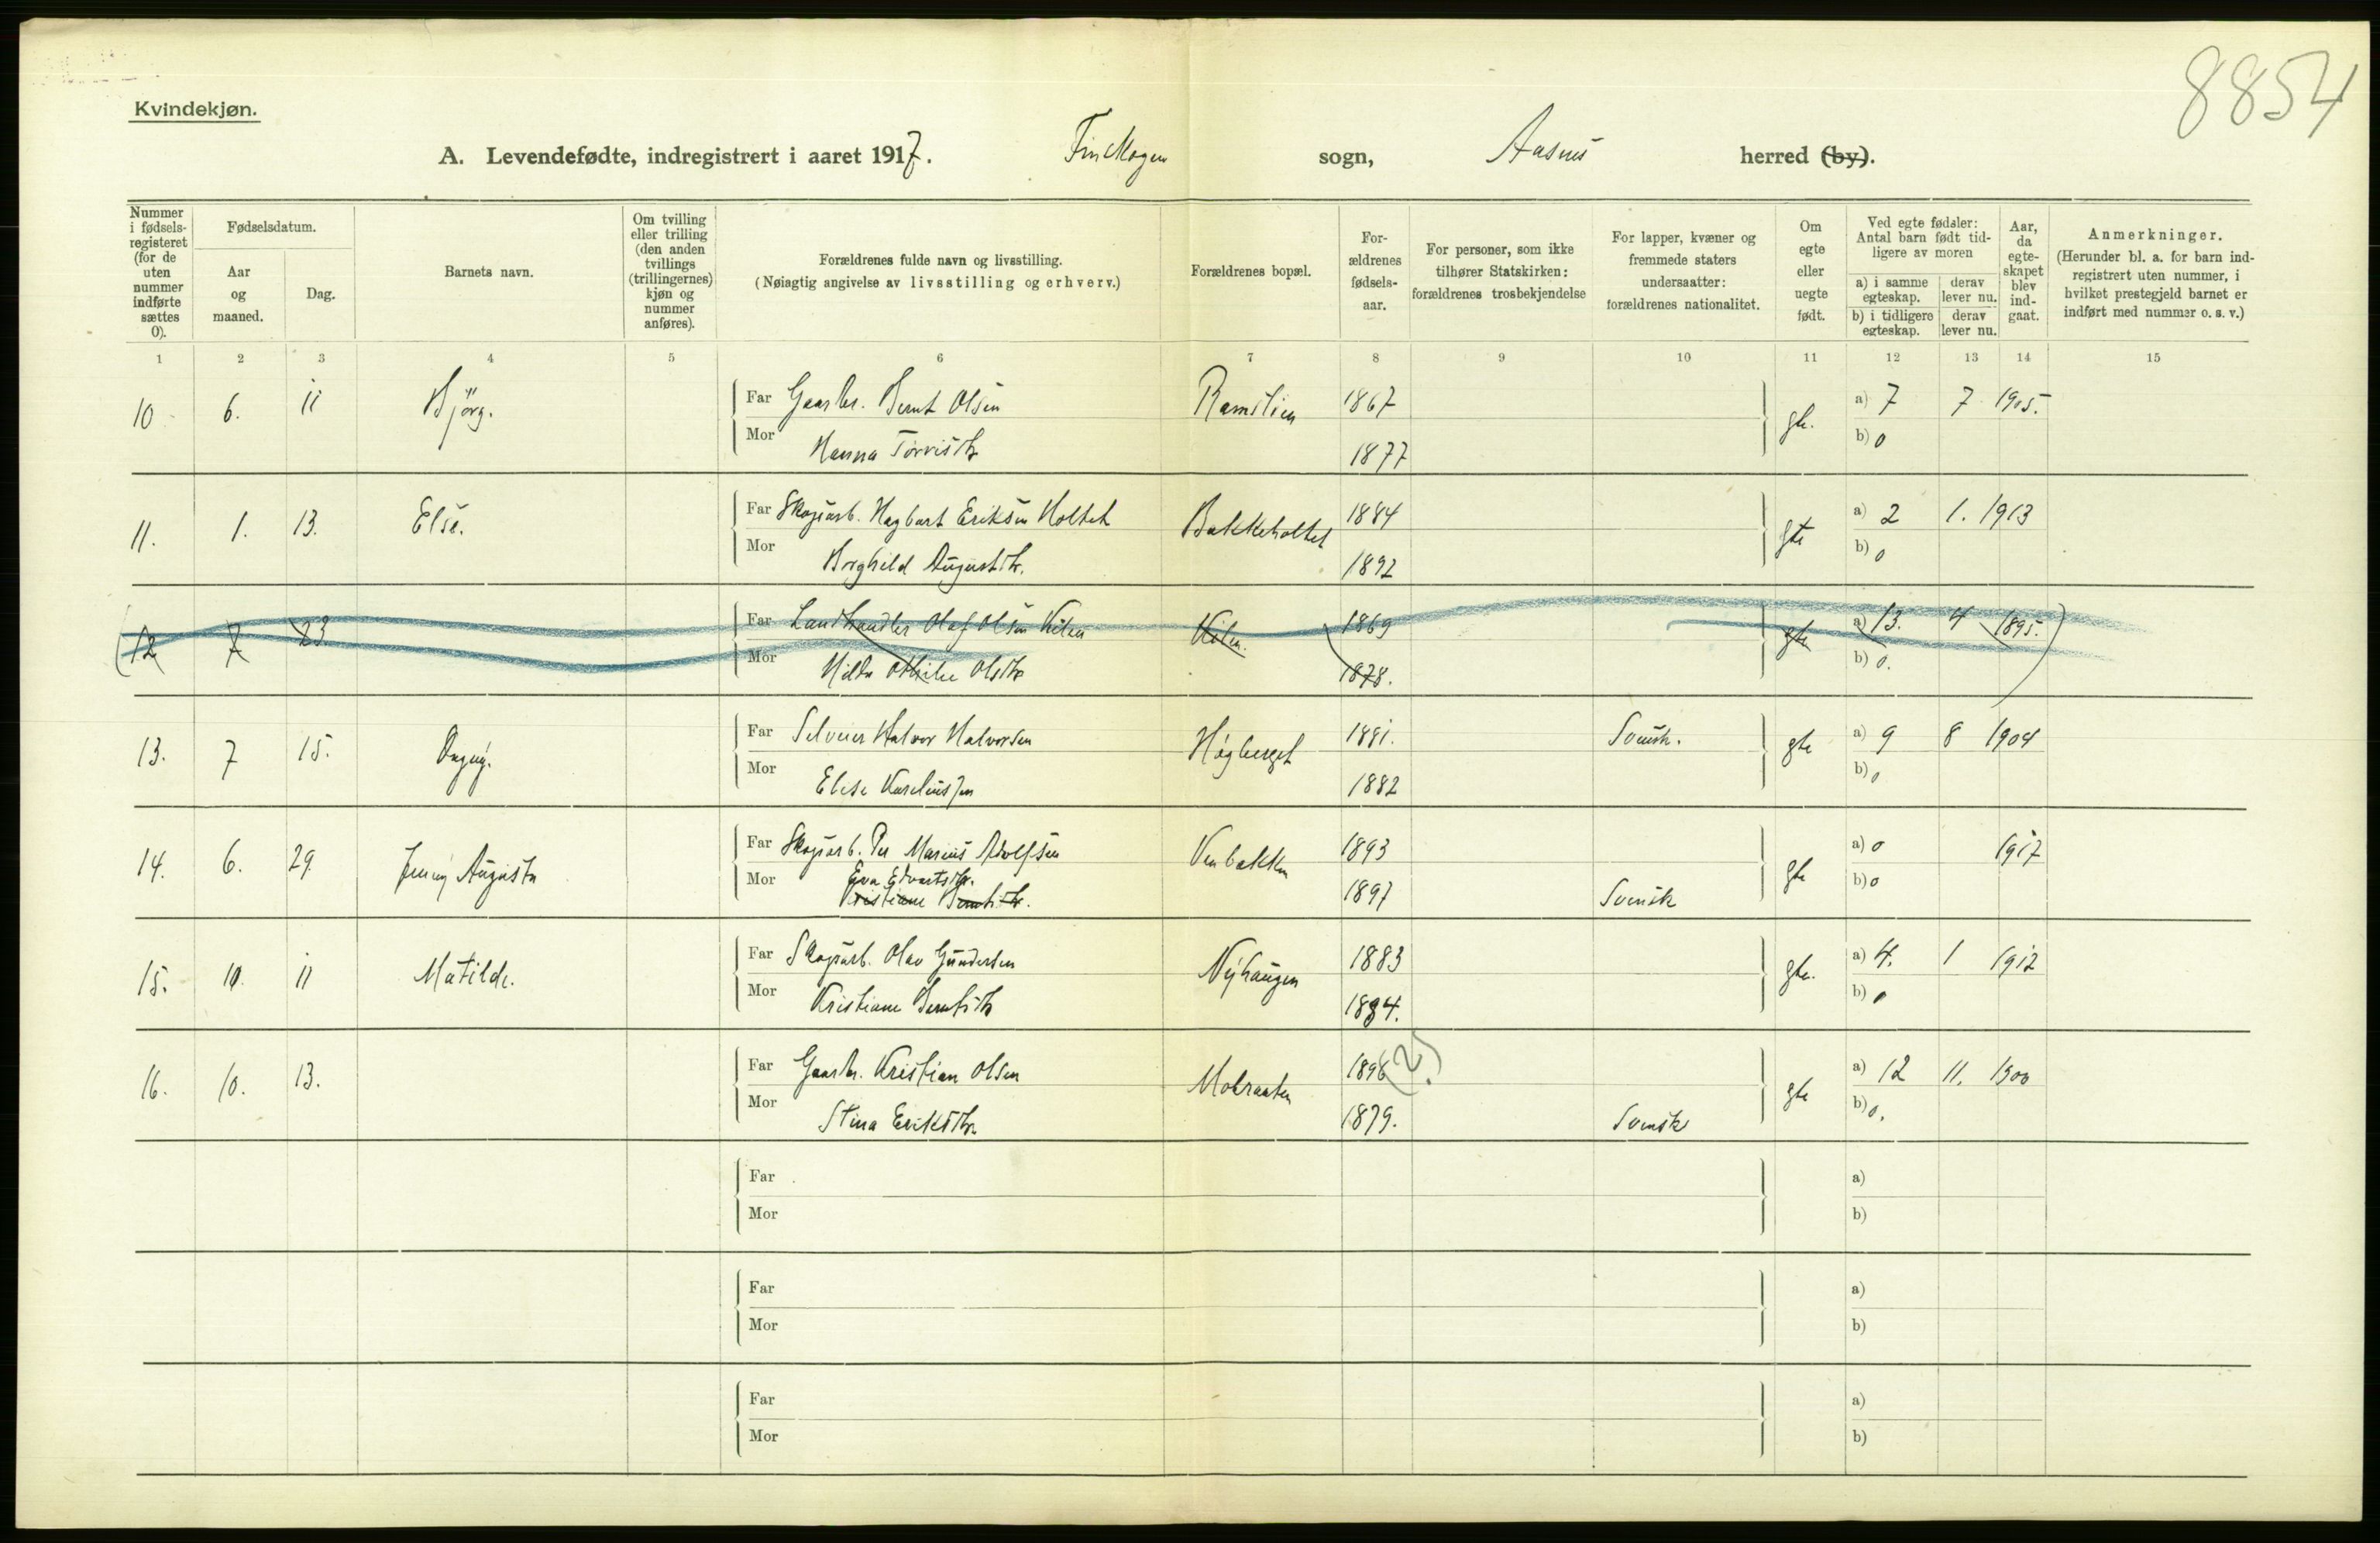 8854
Kvindekjøn.
A. Levendefødte, indregistrert i aaret 1917. Finskogen sogn, Aasnes herred (by).
Nummer i fødselsregisteret (for de uten nummer indførte sættes 0).
Fødselsdatum.
Aar og maaned.
Dag.
Barnets navn.
Om tvilling eller trilling (den anden tvillings (trillingernes) kjøn og nummer anføres).
Forældrenes fulde navn og livsstilling.
(Nøiagtig angivelse av livsstilling og erhverv.)
Forældrenes bopæl.
Forældrenes fødselsaar.
For personer, som ikke tilhører Statskirken: forældrenes trosbekjendelse
For lapper, kvæner og fremmede staters undersaatter: forældrenes nationalitet.
Om egte eller uegte født.
Ved egte fødsler: Antal barn født tidligere av moren
a) i samme egteskap.
derav lever nu.
b) i tidligere egteskap.
derav lever nu.
Aar, da egteskapet blev indgaat.
Anmerkninger.
(Herunder bl. a. for barn indregistrert uten nummer, i hvilket prestegjeld barnet er indført med nummer o. s. v.)
1 2 3 4 5 6 7 8 9 10 11 12 13 14 15
10 6. 11 Bjørg. Far Gaardbr. Bernt Olsen 1867 gte. a) 7 7 1905.
Mor Hanna 1877 b) 0
11. 1. 13. Else. Far Skogsarb. Hagbart Eriksen Holtet Bakkeholtet 1884 gte a) 2 1. 1913
Mor Borghild Augustdtr. 1892 b) 0
12 7 23 Far Landhandler Olaf Olsen Kilen Kilen. 1869 gte a) 13. 4 1895.
Mor Hilda Othilie Olsdtr 1878. b) 0.
13. 7 15. Dagny. Far Halvor Halvorsen Høgberget 1881. Svensk. gte a) 9 8 1904
Mor Elise 1882 b) 0
14. 6. 29. Jenny Augusta Far Skogsarb. Per Marius Adolfsen Venbakken 1893 gte a) 0 1917
Mor Eva Edvartsdtr. 1897 Svensk b) 0
Kristiane Berntsdtr.
15. 10. 11 Matilde. Far Skogsarb. Olav Gundersen Nyhaugen 1883 gte. a) 4. 1 1912
Mor Kristiane Berntsdtr 1884. b) 0
16. 10. 13. Far Gaardbr. Kristian Olsen Mobraaten 1896 (2) gte a) 12 11. 1900
Mor Stina Eriksdtr. 1879. Svensk b) 0.
Far a)
Mor b)
Far a)
Mor b)
Far a)
Mor b)